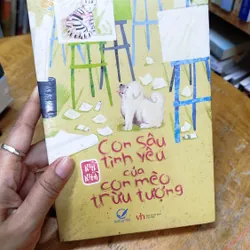 Con sâu
tình yêu
của
con mèo
trừu tượng